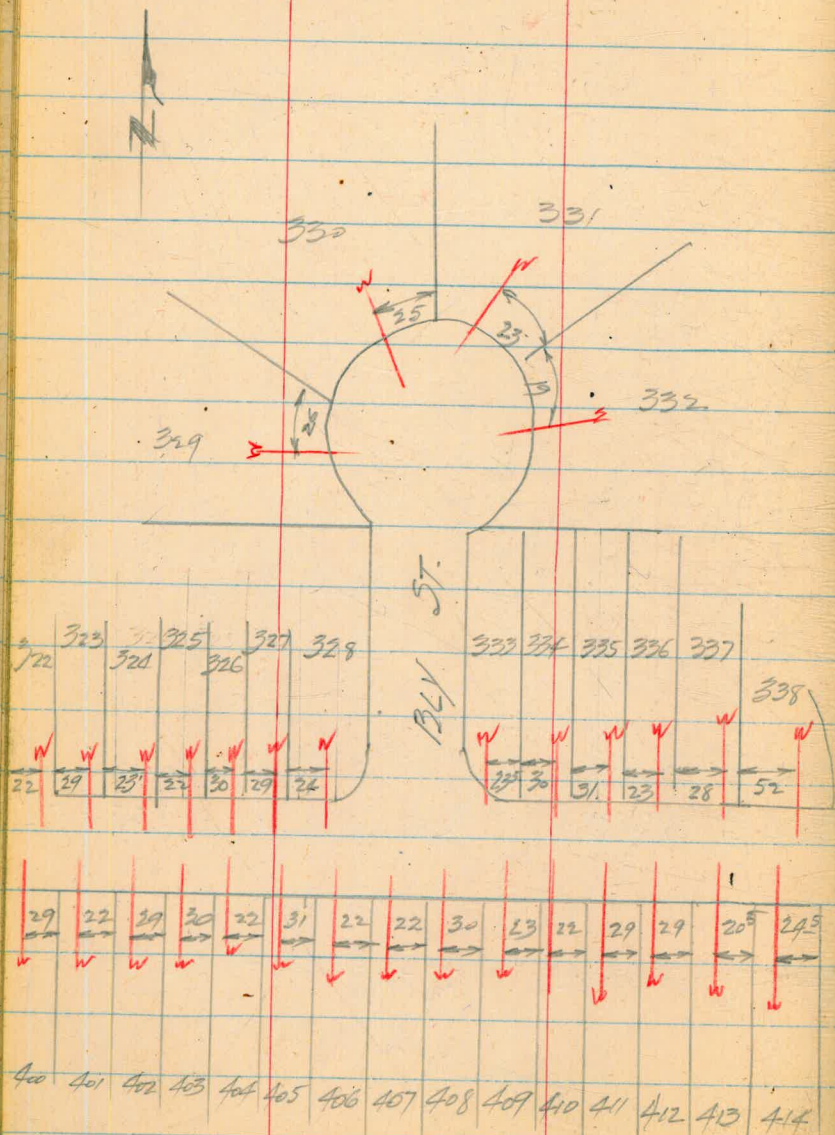 N
330
331
W
W
25
23
19
W
332
25
329
W
BLV ST.
322
323
324
325
326
327
328
333
334
335
336
337
338
W
W
W
W
W
W
W
W
W
W
W
W
W
22
29
23
22
30
29
24
23⁵
30
31
23
28
52
29
22
29
30
22
31
22
22
30
23
22
29
29
20⁵
24⁵
W
W
W
W
W
W
W
W
W
W
W
W
W
W
400
401
402
403
404
405
406
407
408
409
410
411
412
413
414